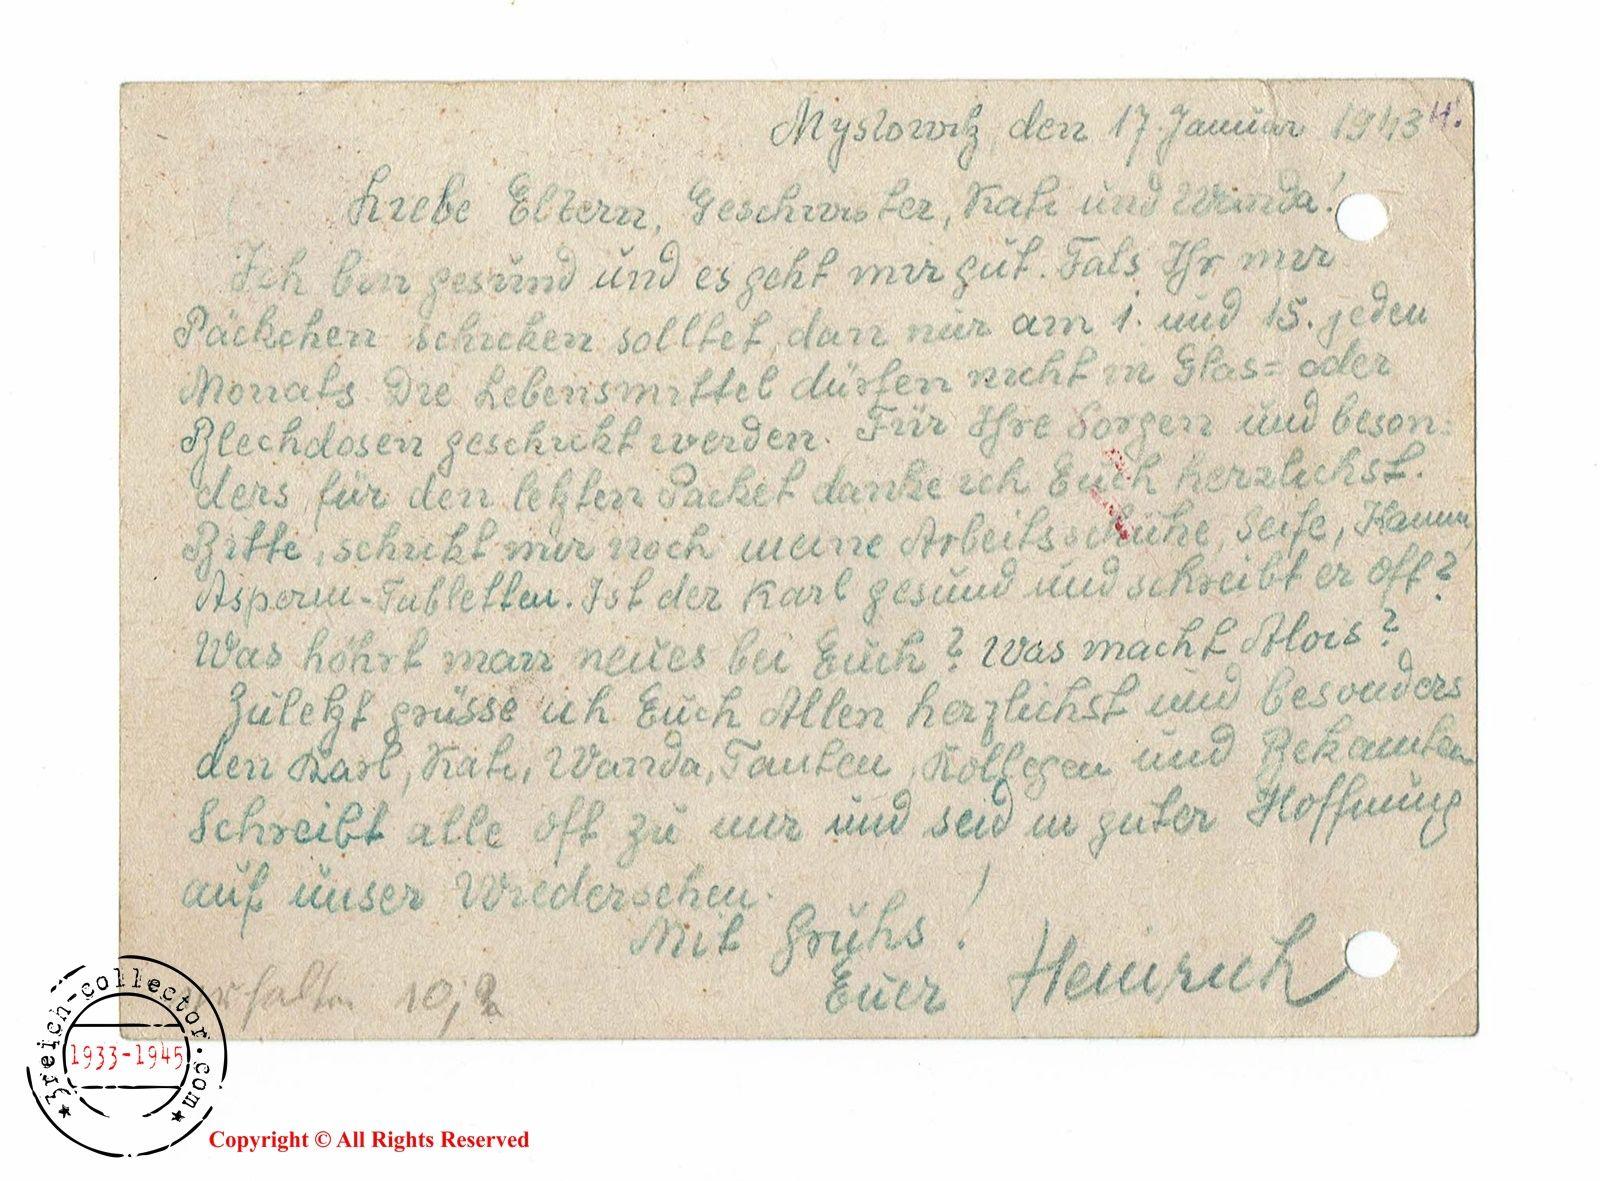 Myslowitz, den 17. Januar 1943 H.
Liebe Eltern, Geschwister, Kati und Wanda!
Ich bin gesund und es geht mir gut. Fals Ihr mir
Päckchen schicken solltet, dan nur am 1. und 15. jeden
Monats. Die Lebensmittel dürfen nicht in Glas= oder
Blechdosen geschickt werden. Für Ihre Sorgen und beson=
ders für den letzten Packet danke ich Euch herzlichst.
Bitte, schickt mir noch meine Arbeitsschuhe, Seife, Kamm,
Asperin-Tabletten. Ist der Karl gesund und schreibt er oft?
Was höhrt man neues bei Euch? Was macht Alois?
Zuletzt grüsse ich Euch Allen herzlichst und besonders
den Karl, Kati, Wanda, Tanten, Kollegen und Bekanten
Schreibt alle oft zu mir und seid in guter Hoffnung
auf unser Wiedersehen. !
Mit Gruhs!
Euer Heinrich
erhalten 10,2
3reich-collector.com
1933-1945
Copyright © All Rights Reserved